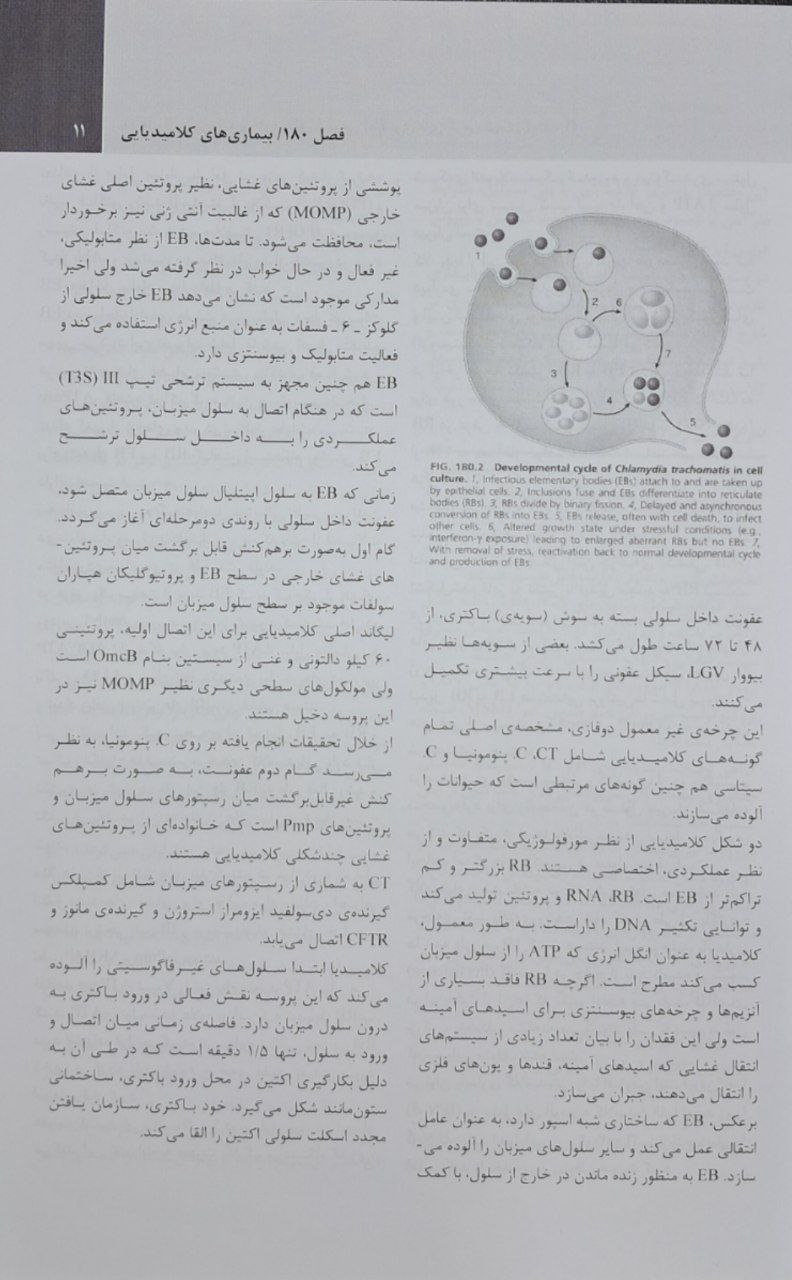 فصل ۱۸۰/ بیماری‌های کلامیدیایی
۱۱
1
2
3
4
5
6
7
FIG. 180.2 Developmental cycle of Chlamydia trachomatis in cell
culture. 1, Infectious elementary bodies (EBs) attach to and are taken up
by epithelial cells. 2, Inclusions fuse and EBs differentiate into reticulate
bodies (RBs). 3, RBs divide by binary fission. 4, Delayed and asynchronous
conversion of RBs into EBs. 5, EBs release, often with cell death, to infect
other cells. 6, Altered growth state under stressful conditions (e.g.,
interferon-γ exposure) leading to enlarged aberrant RBs but no EBs. 7,
With removal of stress, reactivation back to normal developmental cycle
and production of EBs.
عفونت داخل سلولی بسته به سوش (سویه‌ی) باکتری، از
۴۸ تا ۷۲ ساعت طول می‌کشد. بعضی از سویه‌ها نظیر
بیووار LGV، سیکل عفونی را با سرعت بیشتری تکمیل
می‌کنند.
این چرخه‌ی غیر معمول دوفازی، مشخصه‌ی اصلی تمام
گونه‌های کلامیدیایی شامل C ،CT. پنومونیا و C.
سیتاسی هم چنین گونه‌های مرتبطی است که حیوانات را
آلوده می‌سازند.
دو شکل کلامیدیایی از نظر مورفولوژیکی، متفاوت و از
نظر عملکردی، اختصاصی هستند. RB بزرگتر و کم
تراکم‌تر از EB است. RNA ،RB و پروتئین تولید می‌کند
و توانایی تکثیر DNA را داراست. به طور معمول،
کلامیدیا به عنوان انگل انرژی که ATP را از سلول میزبان
کسب می‌کند مطرح است. اگرچه RB فاقد بسیاری از
آنزیم‌ها و چرخه‌های بیوسنتزی برای اسیدهای آمینه
است ولی این فقدان را با بیان تعداد زیادی از سیستم‌های
انتقال غشایی که اسیدهای آمینه، قندها و یون‌های فلزی
را انتقال می‌دهند، جبران می‌سازد.
برعکس، EB که ساختاری شبه اسپور دارد، به عنوان عامل
انتقالی عمل می‌کند و سایر سلول‌های میزبان را آلوده می-
سازد. EB به منظور زنده ماندن در خارج از سلول، با کمک
پوششی از پروتئین‌های غشایی، نظیر پروتئین اصلی غشای
خارجی (MOMP) که از غالبیت آنتی ژنی نیز برخوردار
است، محافظت می‌شود. تا مدت‌ها، EB از نظر متابولیکی،
غیر فعال و در حال خواب در نظر گرفته می‌شد ولی اخیرا
مدارکی موجود است که نشان می‌دهد EB خارج سلولی از
گلوکز ـ ۶ ـ فسفات به عنوان منبع انرژی استفاده می‌کند و
فعالیت متابولیک و بیوسنتزی دارد.
EB هم چنین مجهز به سیستم ترشحی تیپ III (T3S)
است که در هنگام اتصال به سلول میزبان، پروتئین‌های
عملکردی را به داخل سلول ترشح
می‌کند.
زمانی که EB به سلول اپیتلیال سلول میزبان متصل شود،
عفونت داخل سلولی با روندی دومرحله‌ای آغاز می‌گردد.
گام اول به‌صورت برهم‌کنش قابل برگشت میان پروتئین-
های غشای خارجی در سطح EB و پروتیوگلیکان هپاران
سولفات موجود بر سطح سلول میزبان است.
لیگاند اصلی کلامیدیایی برای این اتصال اولیه، پروتئینی
۶۰ کیلو دالتونی و غنی از سیستین بنام OmcB است
ولی مولکول‌های سطحی دیگری نظیر MOMP نیز در
این پروسه دخیل هستند.
از خلال تحقیقات انجام یافته بر روی C. پنومونیا، به نظر
می‌رسد گام دوم عفونت، به صورت برهم
کنش غیرقابل‌برگشت میان رسپتورهای سلول میزبان و
پروتئین‌های Pmp است که خانواده‌ای از پروتئین‌های
غشایی چندشکلی کلامیدیایی هستند.
CT به شماری از رسپتورهای میزبان شامل کمپلکس
گیرنده‌ی دی‌سولفید ایزومراز استروژن و گیرنده‌ی مانوز و
CFTR اتصال می‌یابد.
کلامیدیا ابتدا سلول‌های غیرفاگوسیتی را آلوده
می‌کند که این پروسه نقش فعالی در ورود باکتری به
درون سلول میزبان دارد. فاصله‌ی زمانی میان اتصال و
ورود به سلول، تنها ۱/۵ دقیقه است که در طی آن به
دلیل بکارگیری اکتین در محل ورود باکتری، ساختمانی
ستون‌مانند شکل می‌گیرد. خود باکتری، سازمان یافتن
مجدد اسکلت سلولی اکتین را القا می‌کند.